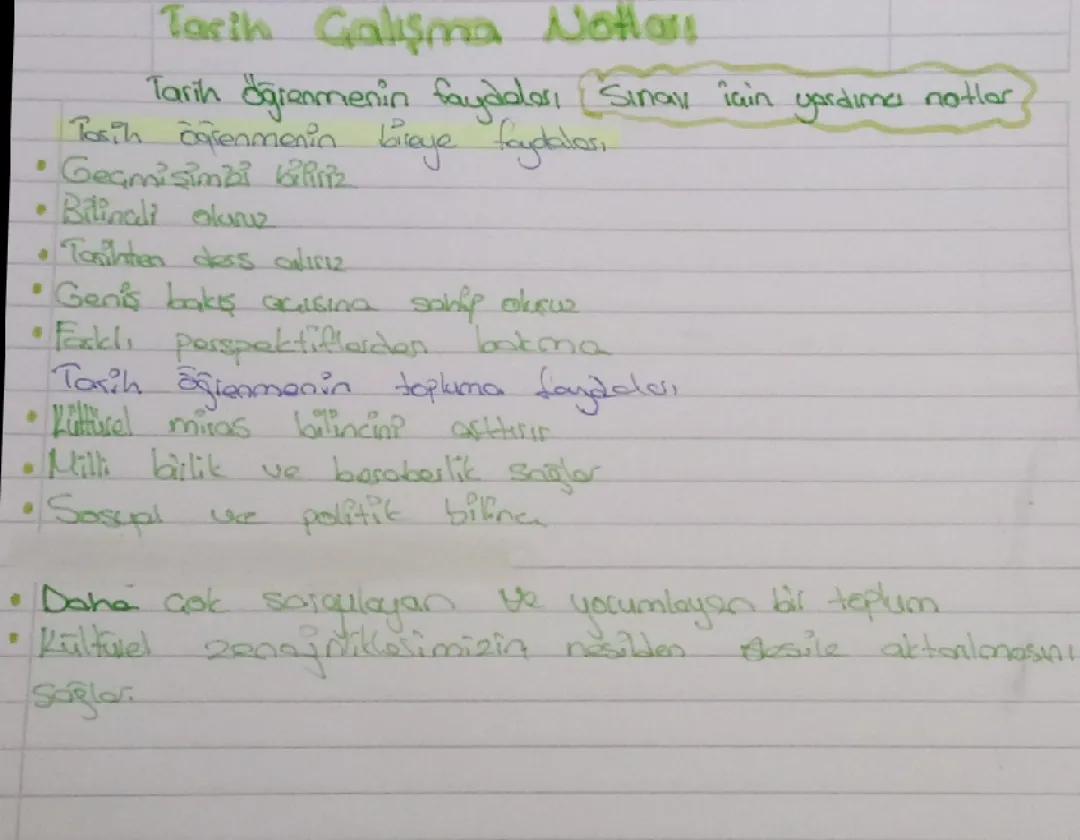 Tarih Çalışma Notları
Tarih öğrenmenin faydaları Sınav için yardımcı notlar
Tarih öğrenmenin bireye faydaları
• Geçmişimizi biliriz
• Bilinçli oluruz
• Tarihten ders alırız
• Geniş bakış açısına sahip oluruz
• Farklı perspektiflerden bakma
Tarih öğrenmenin topluma faydaları
• Kültürel miras bilincini arttırır
• Milli birlik ve beraberlik sağlar
• Sosyal ve politik bilinç
• Daha çok sorgulayan ve yorumlayan bir toplum
• Kültürel zenginliklerimizin nesilden nesile aktarılmasını
sağlar.